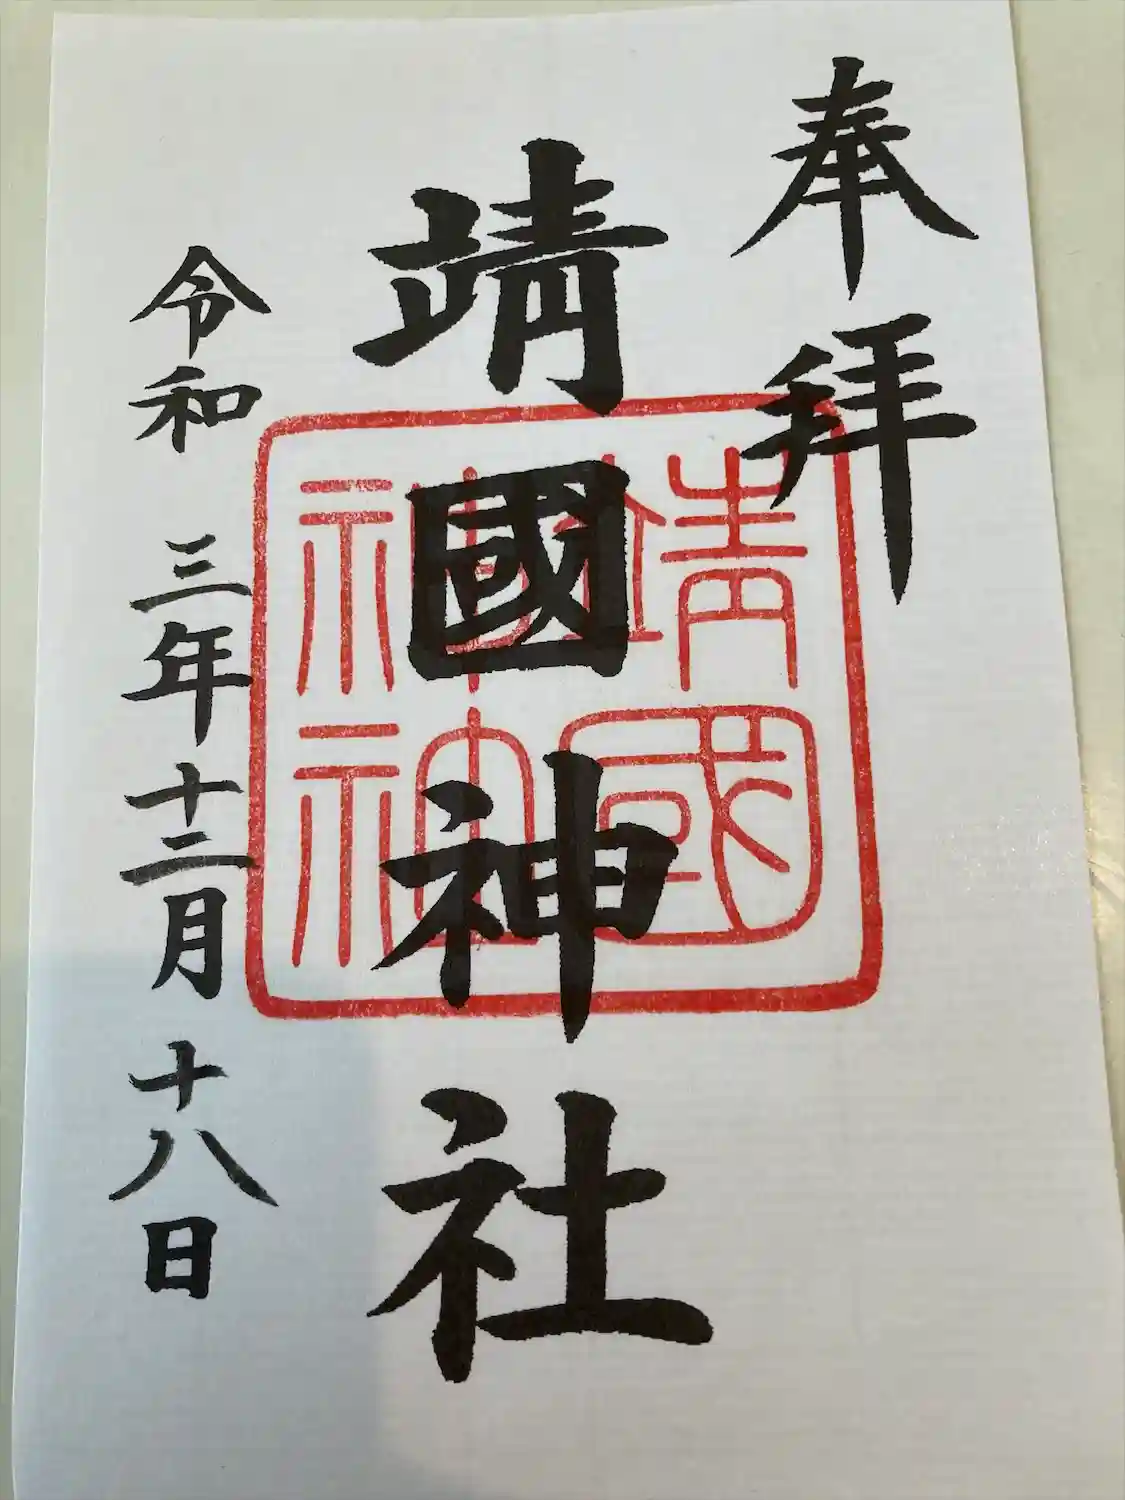 奉拝
靖國神社
靖國
神社
令和三年十二月十八日